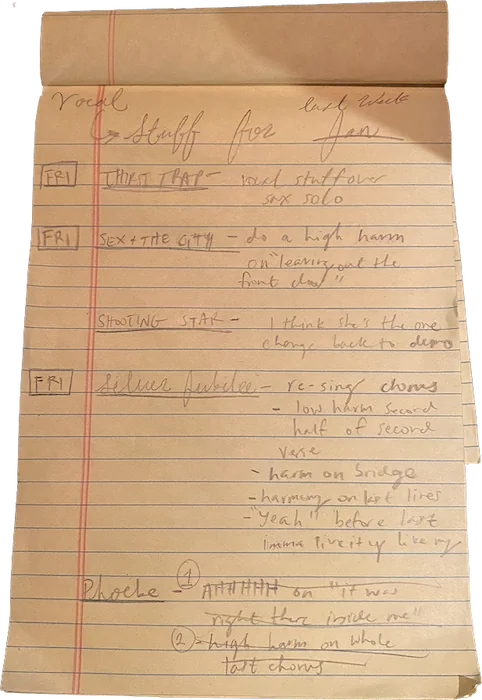 Vocal last week
→ Stuff for Jan
FRI THIRST TRAP - vocal stuff over
sax solo
FRI SEX + THE CITY - do a high harm
on "leaving out the
front door"
SHOOTING STAR - I think she's the one
change back to demo
FRI Silver Jubilee - re-sing chorus
- low harm second
half of second
verse
- harm on bridge
- harmony on last lines
- "Yeah" before last
imma live it up like my
Phoebe - ① AHHHHH on "it was
right there inside me"
② - high harm on whole
last chorus